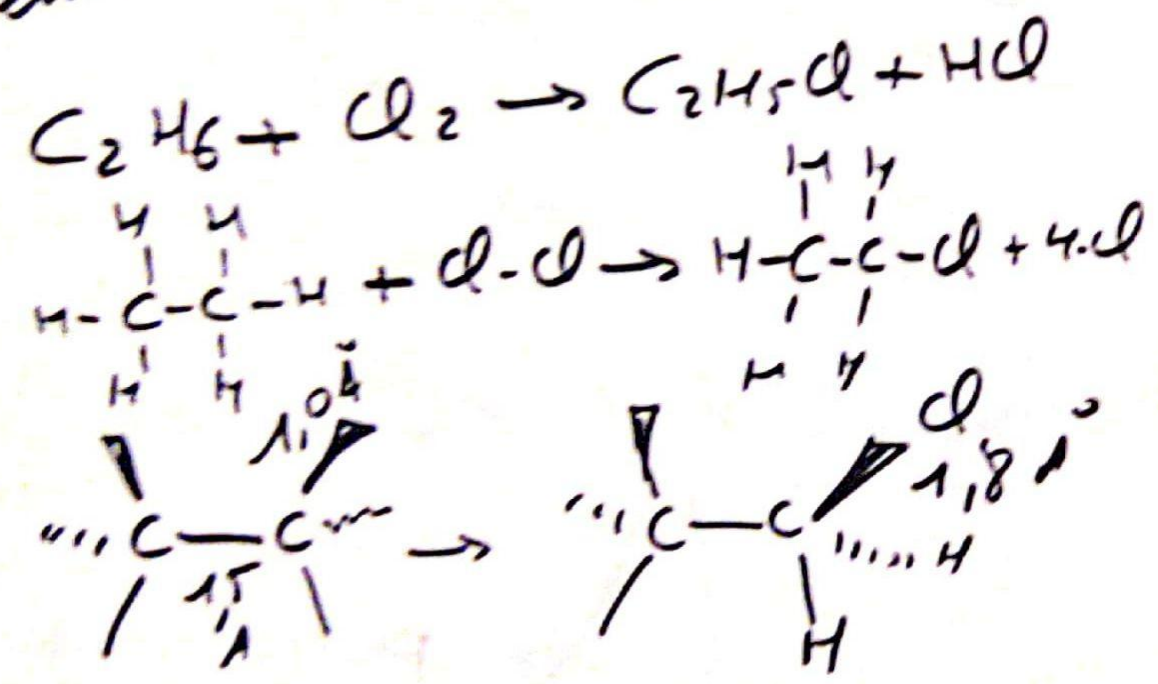 C₂H₆ + Cl₂ → C₂H₅Cl + HCl
H H H H
H-C-C-H + Cl-Cl → H-C-C-Cl + H-Cl
H H H H
1,0 Å Cl
1,8 Å
C — C → C — C H
1,5 Å
H